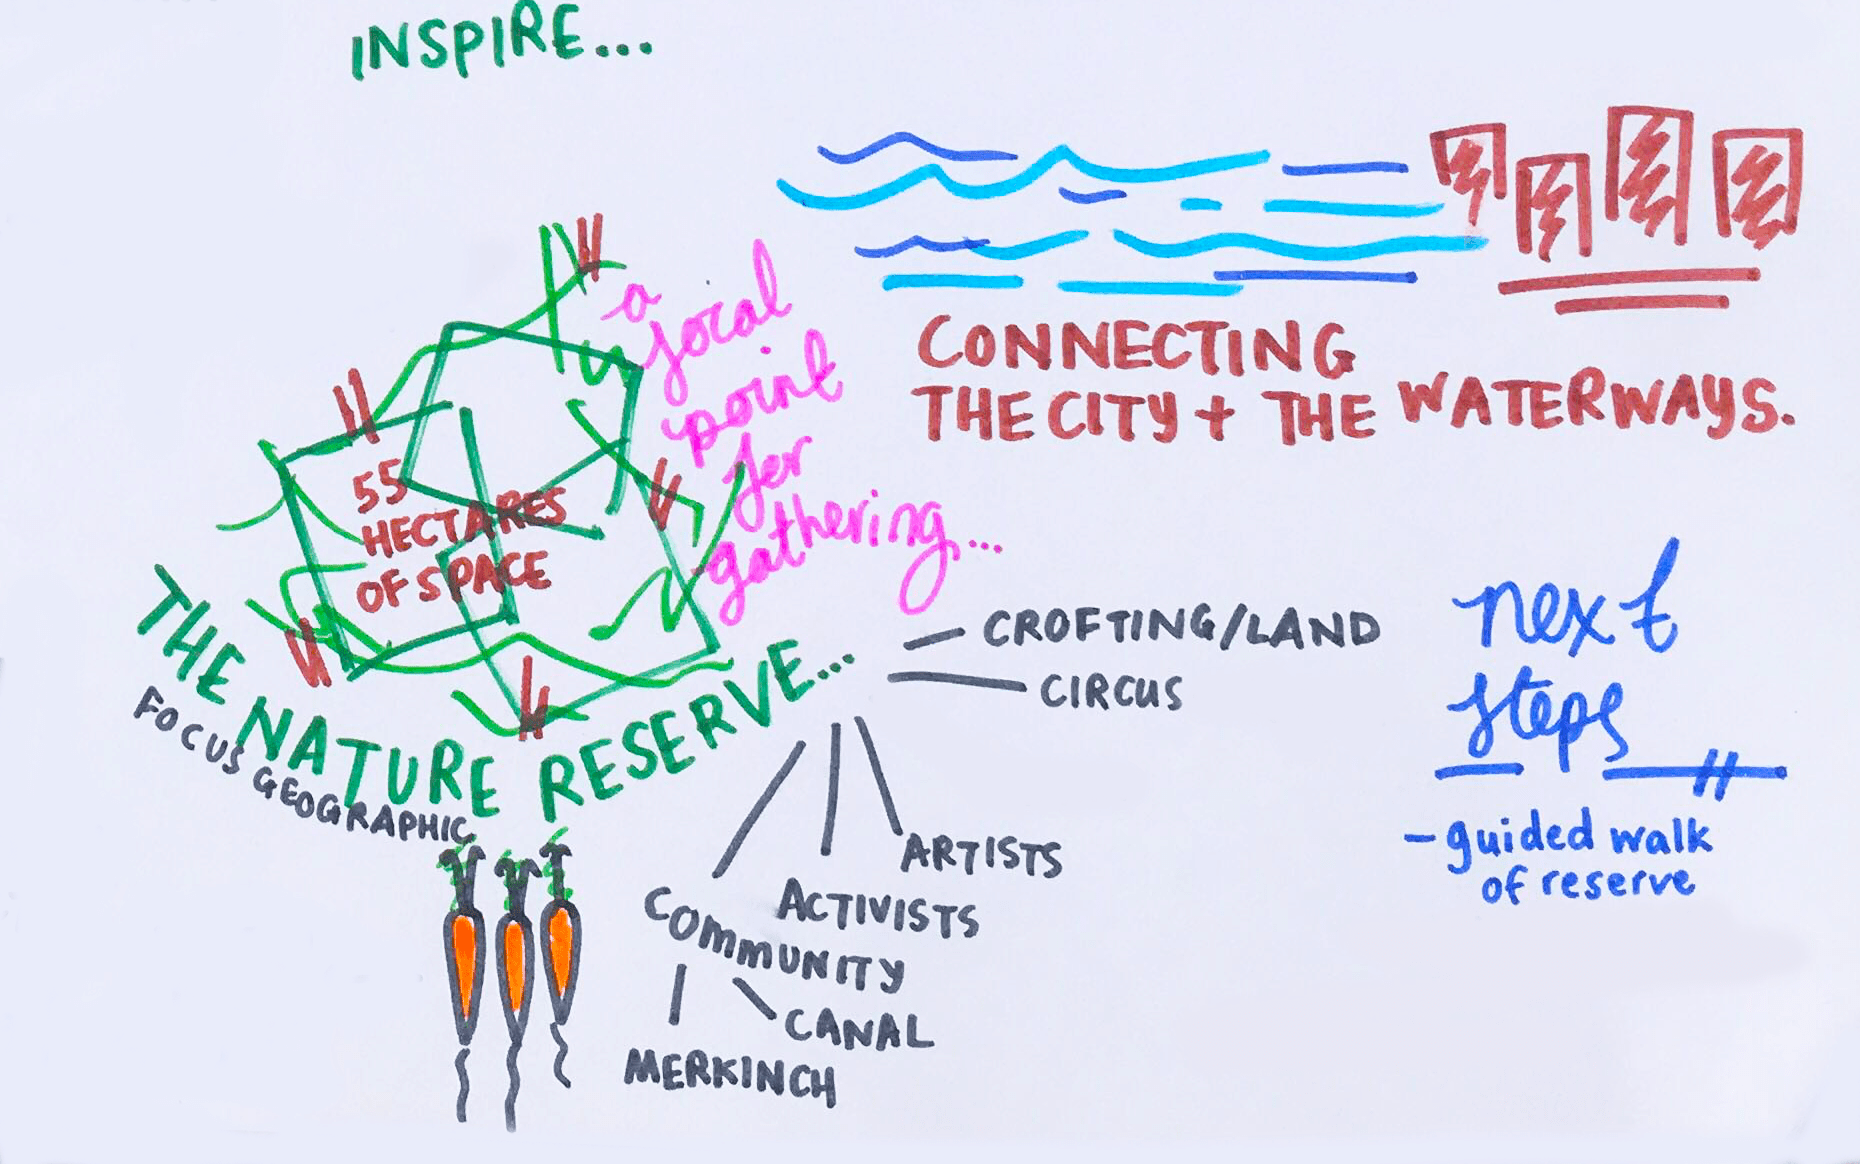 INSPIRE...
CONNECTING
THE CITY + THE WATERWAYS.
a
focal
point
for
gathering...
55
HECTARES
OF SPACE
THE NATURE RESERVE...
FOCUS GEOGRAPHIC
CROFTING/LAND
CIRCUS
ARTISTS
ACTIVISTS
COMMUNITY
CANAL
MERKINCH
next
steps
- guided walk
of reserve